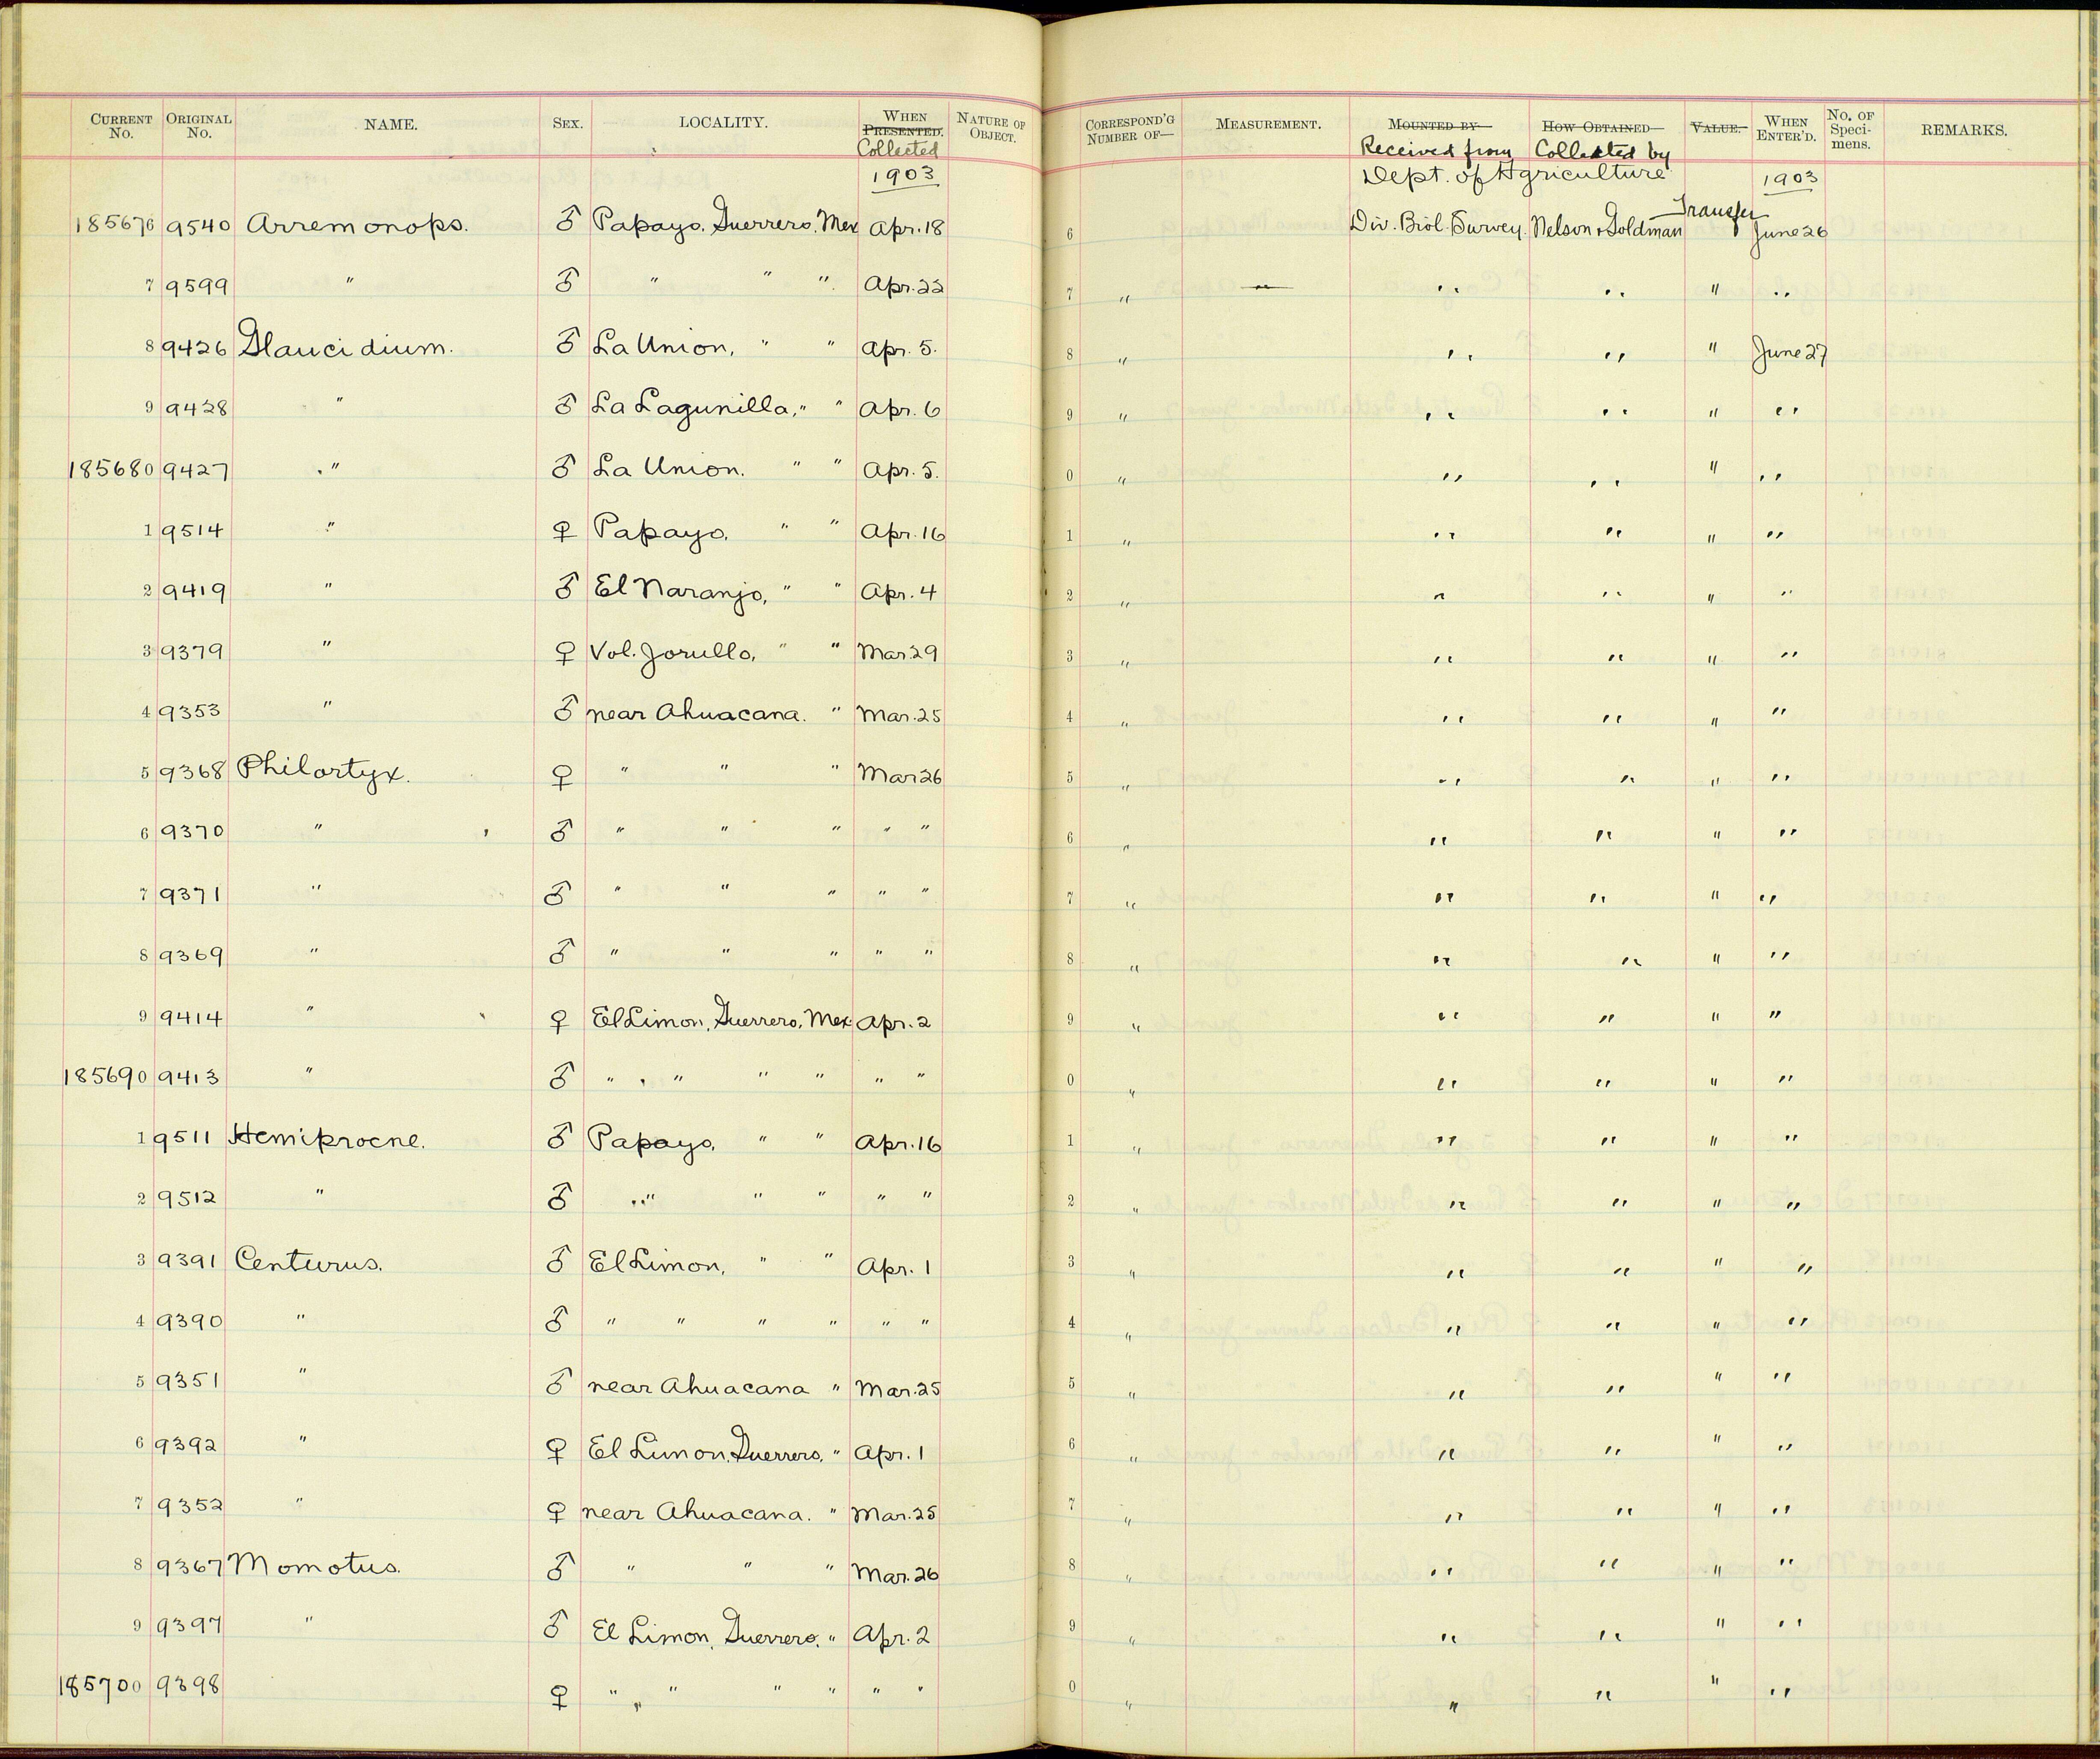 CURRENT No. ORIGINAL No. NAME. SEX. LOCALITY. WHEN PRESENTED. Collected NATURE OF OBJECT. CORRESPOND'G NUMBER OF— MEASUREMENT. MOUNTED BY Received from HOW OBTAINED Collected by VALUE. WHEN ENTER'D. No. OF Specimens. REMARKS.
1903 Dept. of Agriculture 1903
185676 9540 Arremonops. ♂ Papayo, Guerrero, Mex Apr. 18 6 Div. Biol. Survey. Nelson & Goldman Transfer June 26
7 9599 " ♂ " " " Apr. 22 7 " " " " " "
8 9426 Glaucidium. ♂ La Union, " " Apr. 5. 8 " " " " June 27
9 9428 " ♂ La Lagunilla, " " Apr. 6 9 " " " " "
185680 9427 " ♂ La Union. " " Apr. 5. 0 " " " " "
1 9514 " ♀ Papayo, " " Apr. 16 1 " " " " "
2 9419 " ♂ El Naranjo, " " Apr. 4 2 " " " " "
3 9379 " ♀ Vol. Jorullo, " " Mar. 29 3 " " " " "
4 9353 " ♂ near Ahuacana. " Mar. 25 4 " " " " "
5 9368 Philortyx. ♀ " " " Mar 26 5 " " " " "
6 9370 " ♂ " " " " " 6 " " " " "
7 9371 " ♂ " " " " " 7 " " " " "
8 9369 " ♂ " " " " " 8 " " " " "
9 9414 " ♀ El Limon, Guerrero, Mex. Apr. 2 9 " " " " "
185690 9413 " ♂ " " " " " " 0 " " " " "
1 9511 Hemiprocne. ♂ Papayo, " " Apr. 16 1 " " " " "
2 9512 " ♂ " " " " " 2 " " " " "
3 9391 Centurus. ♂ El Limon, " " Apr. 1 3 " " " " "
4 9390 " ♂ " " " " " " 4 " " " " "
5 9351 " ♂ near Ahuacana " Mar. 25 5 " " " " "
6 9392 " ♀ El Limon, Guerrero, " Apr. 1 6 " " " " "
7 9352 " ♀ near Ahuacana. " Mar. 25 7 " " " " "
8 9367 Momotus. ♂ " " " Mar. 26 8 " " " " "
9 9397 " ♂ El Limon, Guerrero, " Apr. 2 9 " " " " "
185700 9398 ♀ " " " " " " 0 " " " " "